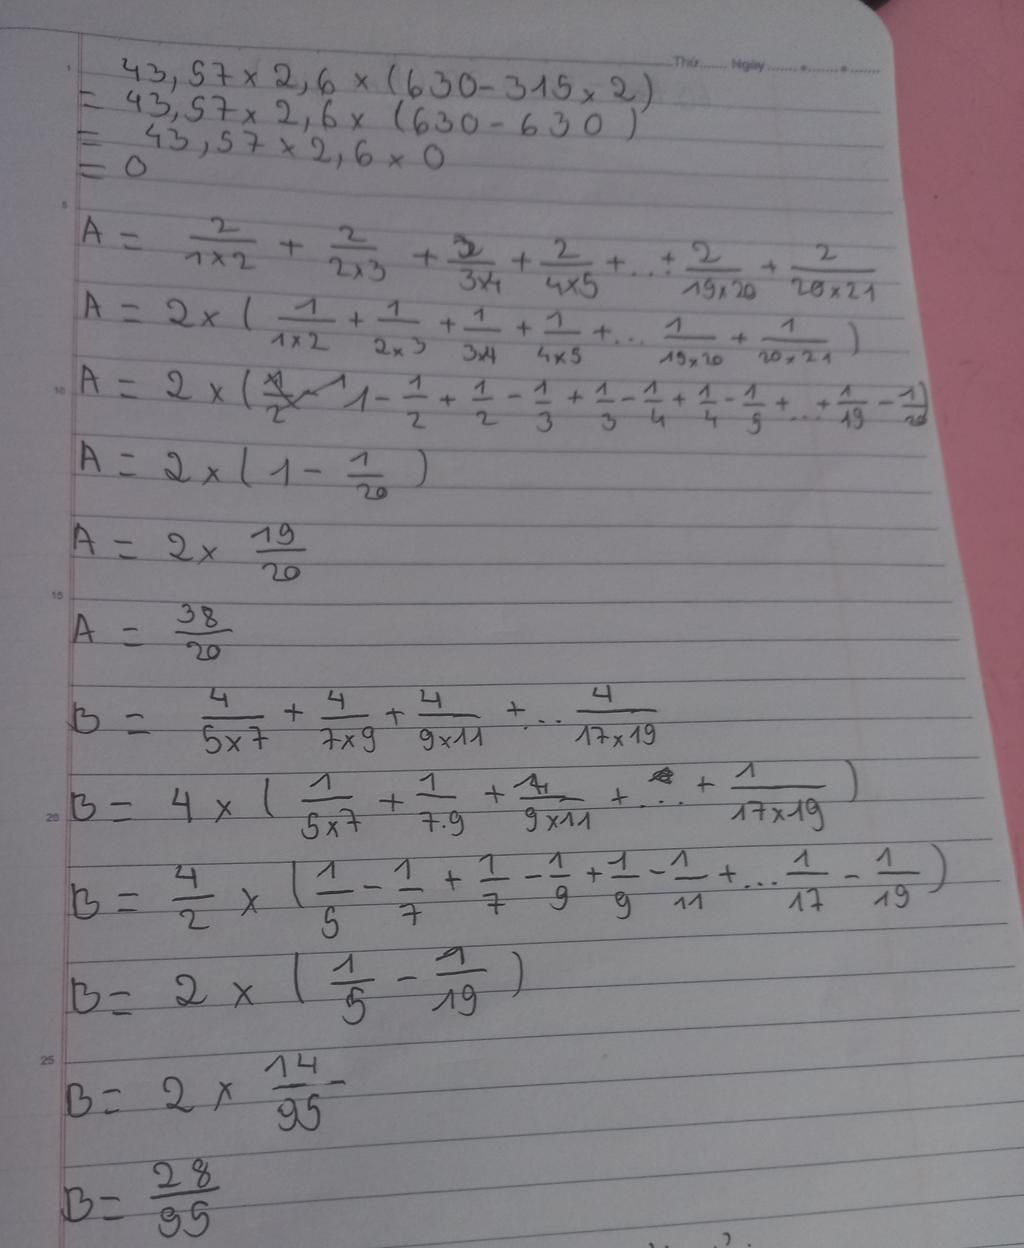 Thứ ...... Ngày ......
43,57 × 2,6 × (630 - 315 × 2)
= 43,57 × 2,6 × (630 - 630)
= 43,57 × 2,6 × 0
= 0
5
A = 2/(1×2) + 2/(2×3) + 2/(3×4) + 2/(4×5) + ... + 2/(19×20) + 2/(20×21)
A = 2 × ( 1/(1×2) + 1/(2×3) + 1/(3×4) + 1/(4×5) + ... 1/(19×20) + 1/(20×21) )
10
A = 2 × ( 1 - 1/2 + 1/2 - 1/3 + 1/3 - 1/4 + 1/4 - 1/5 + ... + 1/19 - 1/20 )
A = 2 × ( 1 - 1/20 )
A = 2 × 19/20
15
A = 38/20
B = 4/(5×7) + 4/(7×9) + 4/(9×11) + ... 4/(17×19)
20
B = 4 × ( 1/(5×7) + 1/(7.9) + 1/(9×11) + ... + 1/(17×19) )
B = 4/2 × ( 1/5 - 1/7 + 1/7 - 1/9 + 1/9 - 1/11 + ... 1/17 - 1/19 )
B = 2 × ( 1/5 - 1/19 )
25
B = 2 × 14/95
B = 28/95